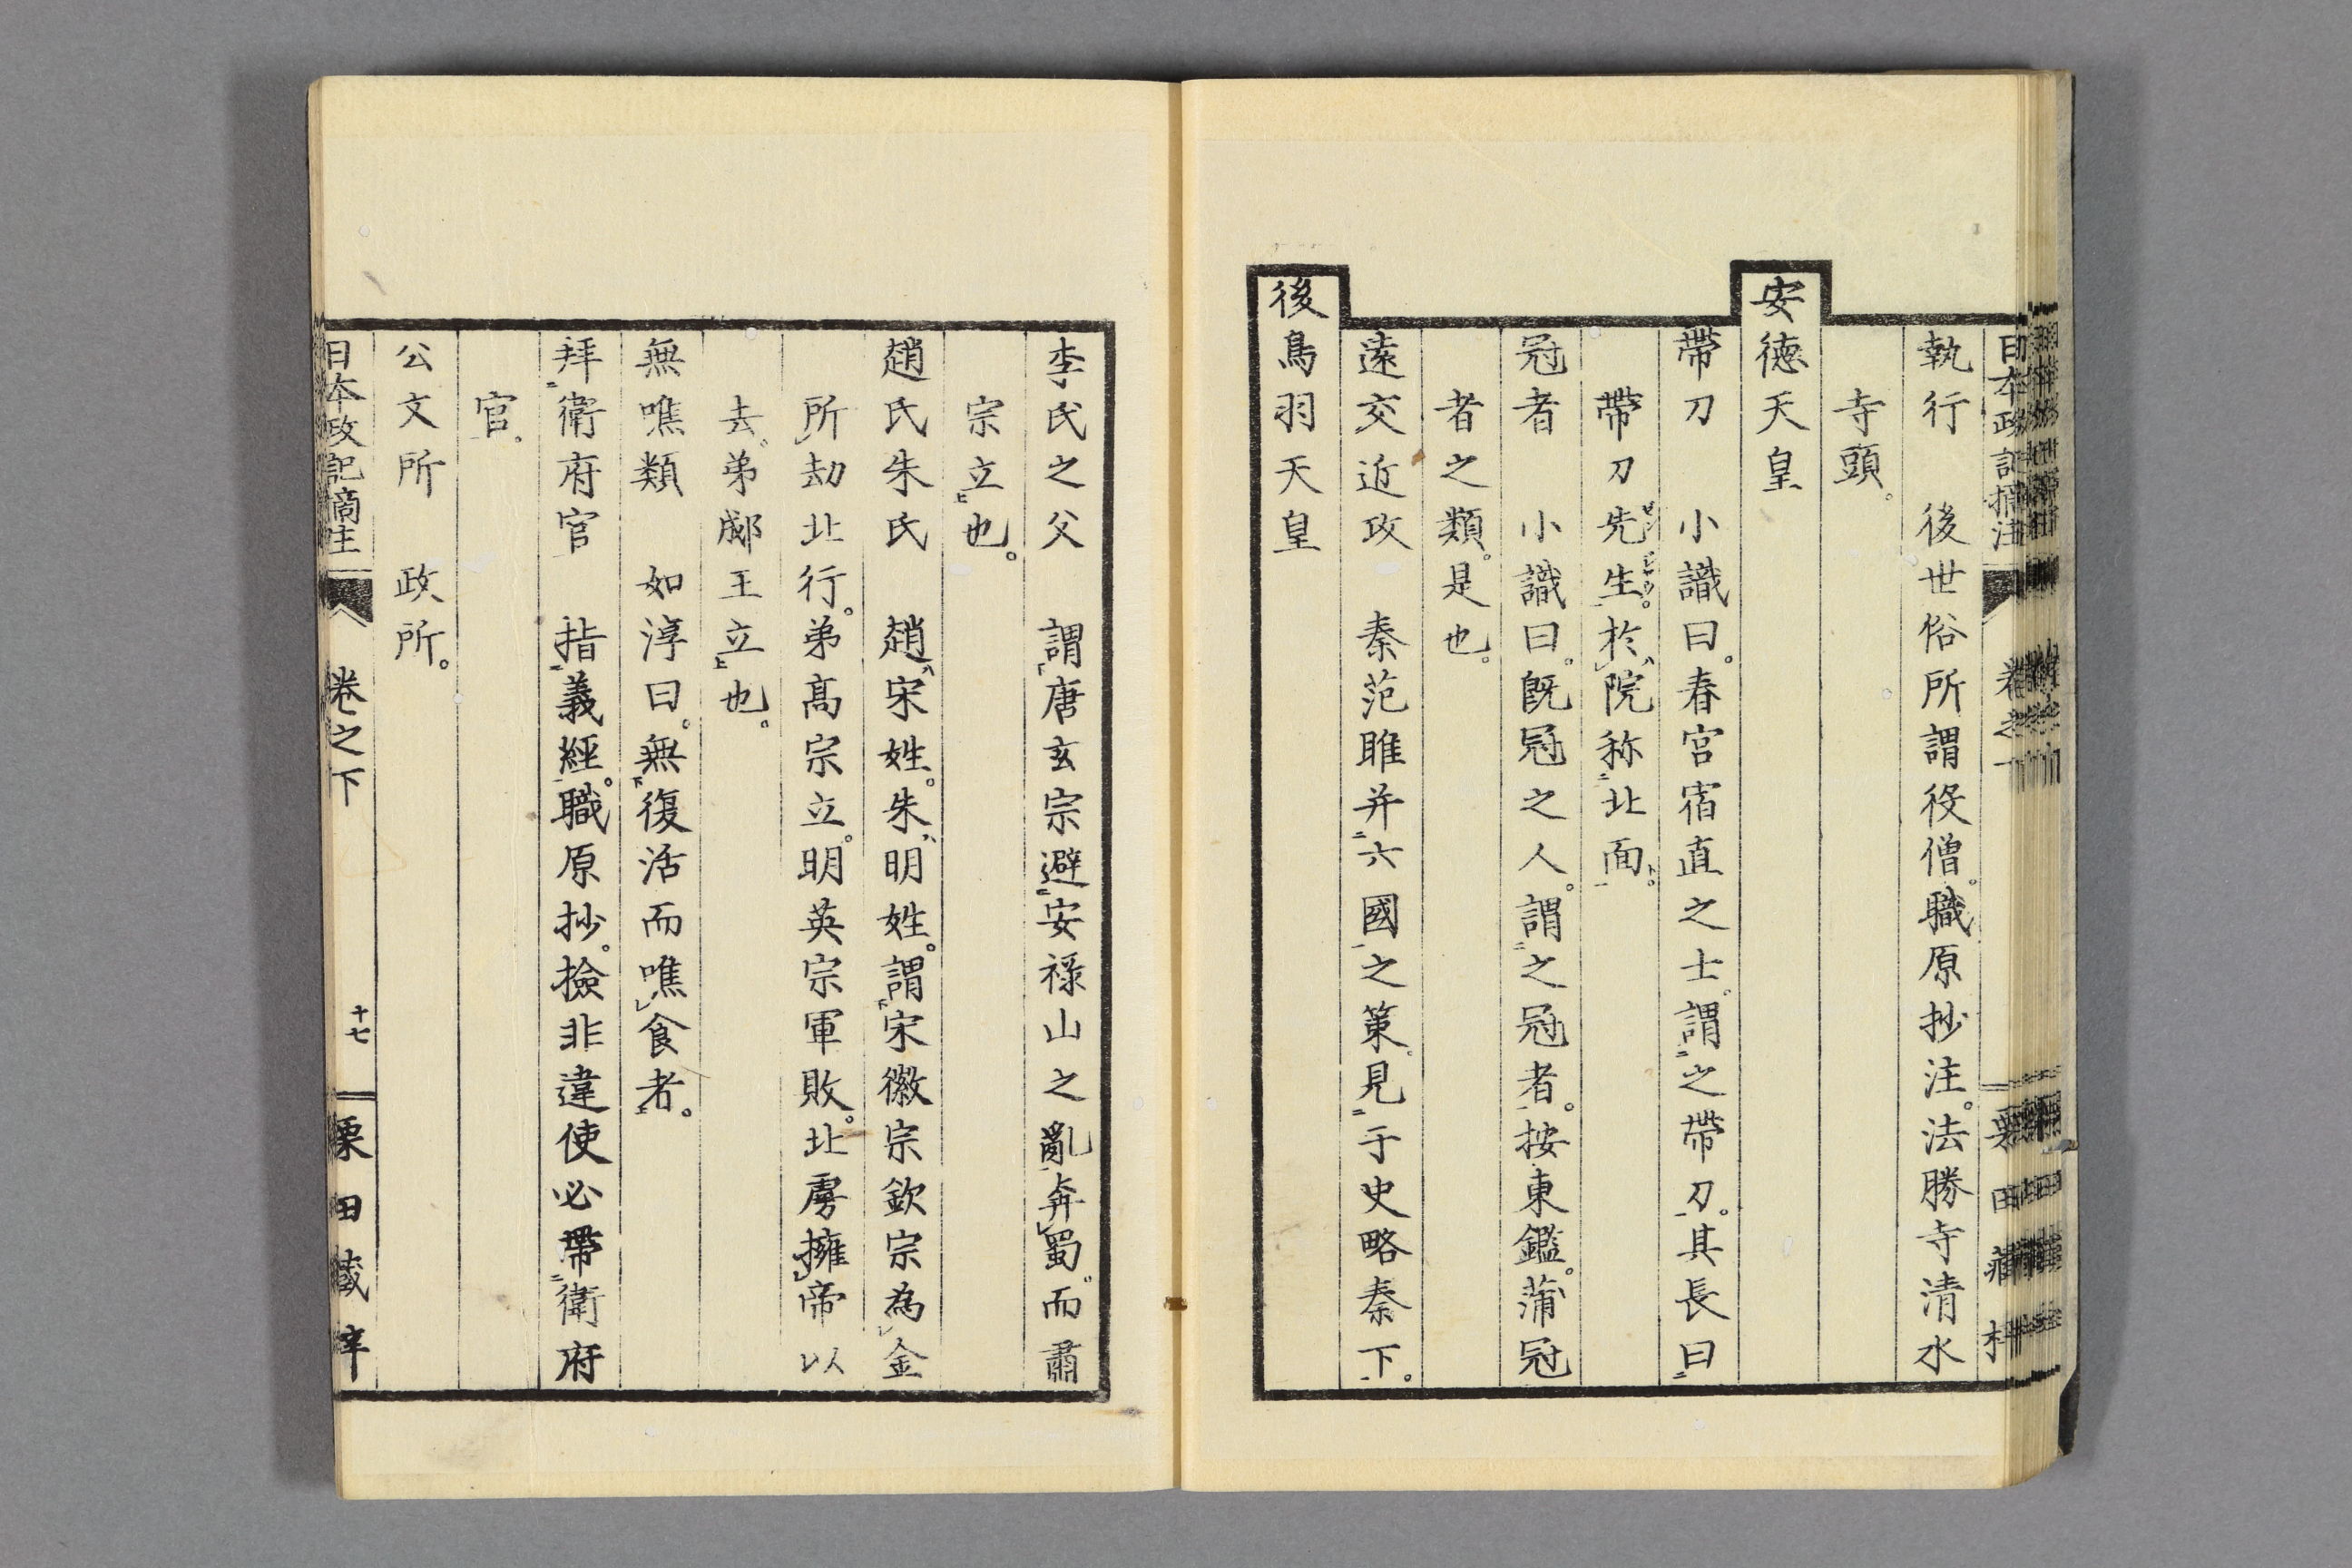 日本政記摘注
執行　後世俗所謂役僧。職原抄注。法勝寺清水
寺頭。
安德天皇
帶刀　小識曰。春宮宿直之士。謂之帶刀。其長曰
帶刀先生。於院称北面。
冠者　小識曰。既冠之人。謂之冠者。按東鑑。蒲冠
者之類。是也。
遠交近攻　秦范雎并六國之策。見于史略秦下。
後鳥羽天皇
李氏之父　謂唐玄宗避安祿山之亂奔蜀。而肅
宗立也。
趙氏朱氏　趙宋姓。朱明姓。謂宋徽宗欽宗為金
所劫北行。弟高宗立。明英宗軍敗。北虜擁帝以
去。弟郕王立也。
無噍類　如淳曰。無復活而噍食者。
拜衛府官　指義經。職原抄。撿非違使必帶衛府
官。
公文所　政所。
日本政記摘注　卷之下　十七　栗田藏梓